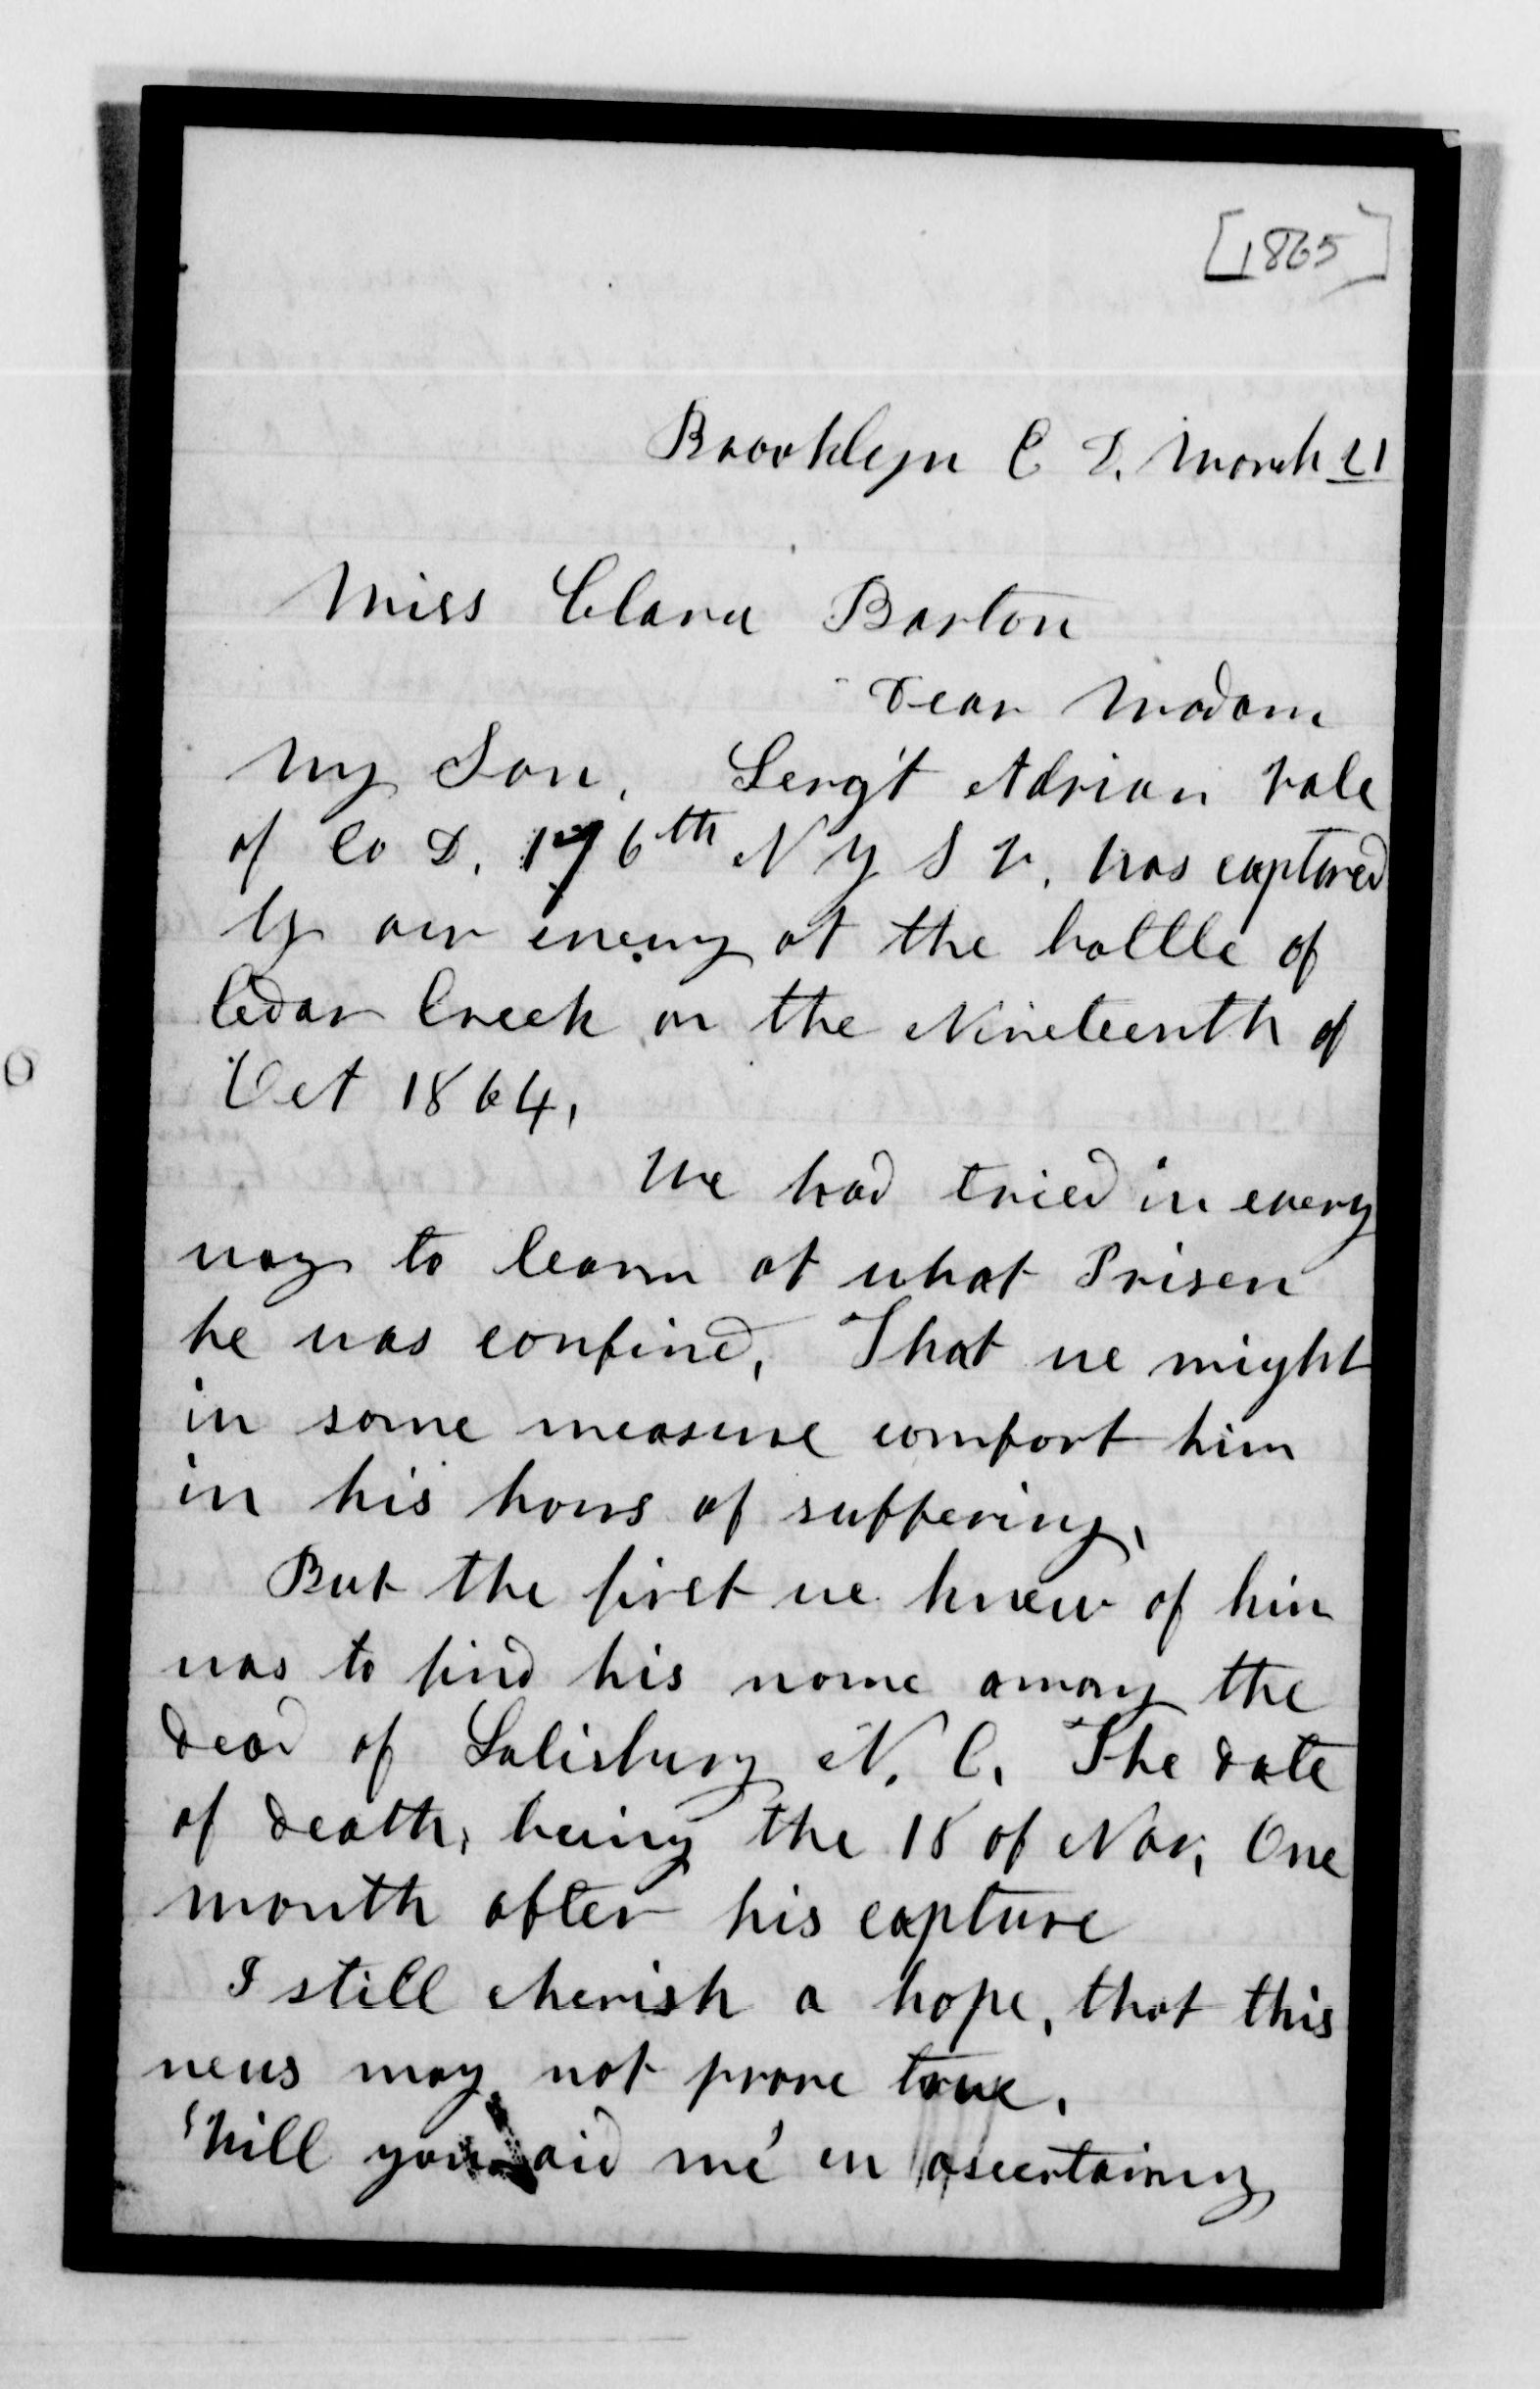 [1865]
Brooklyn E D. March 21
Miss Clara Barton
Dear Madam
My Son, Serg't Adrian Vale
of Co D, 176th N Y S V, was captured
by our enemy at the battle of
Cedar Creek on the Nineteenth of
Oct 1864,
We had tried in every
way to learn at what Prisen
he was confind, That we might
in some measure comfort him
in his hours of suffering,
But the first we knew of him
was to find his name among the
dead of Salisbury N. C. The date
of death, being the 18 of Nov, One
month after his capture
I still cherish a hope, that this
news may not prove true.
Will you aid me in ascertaining